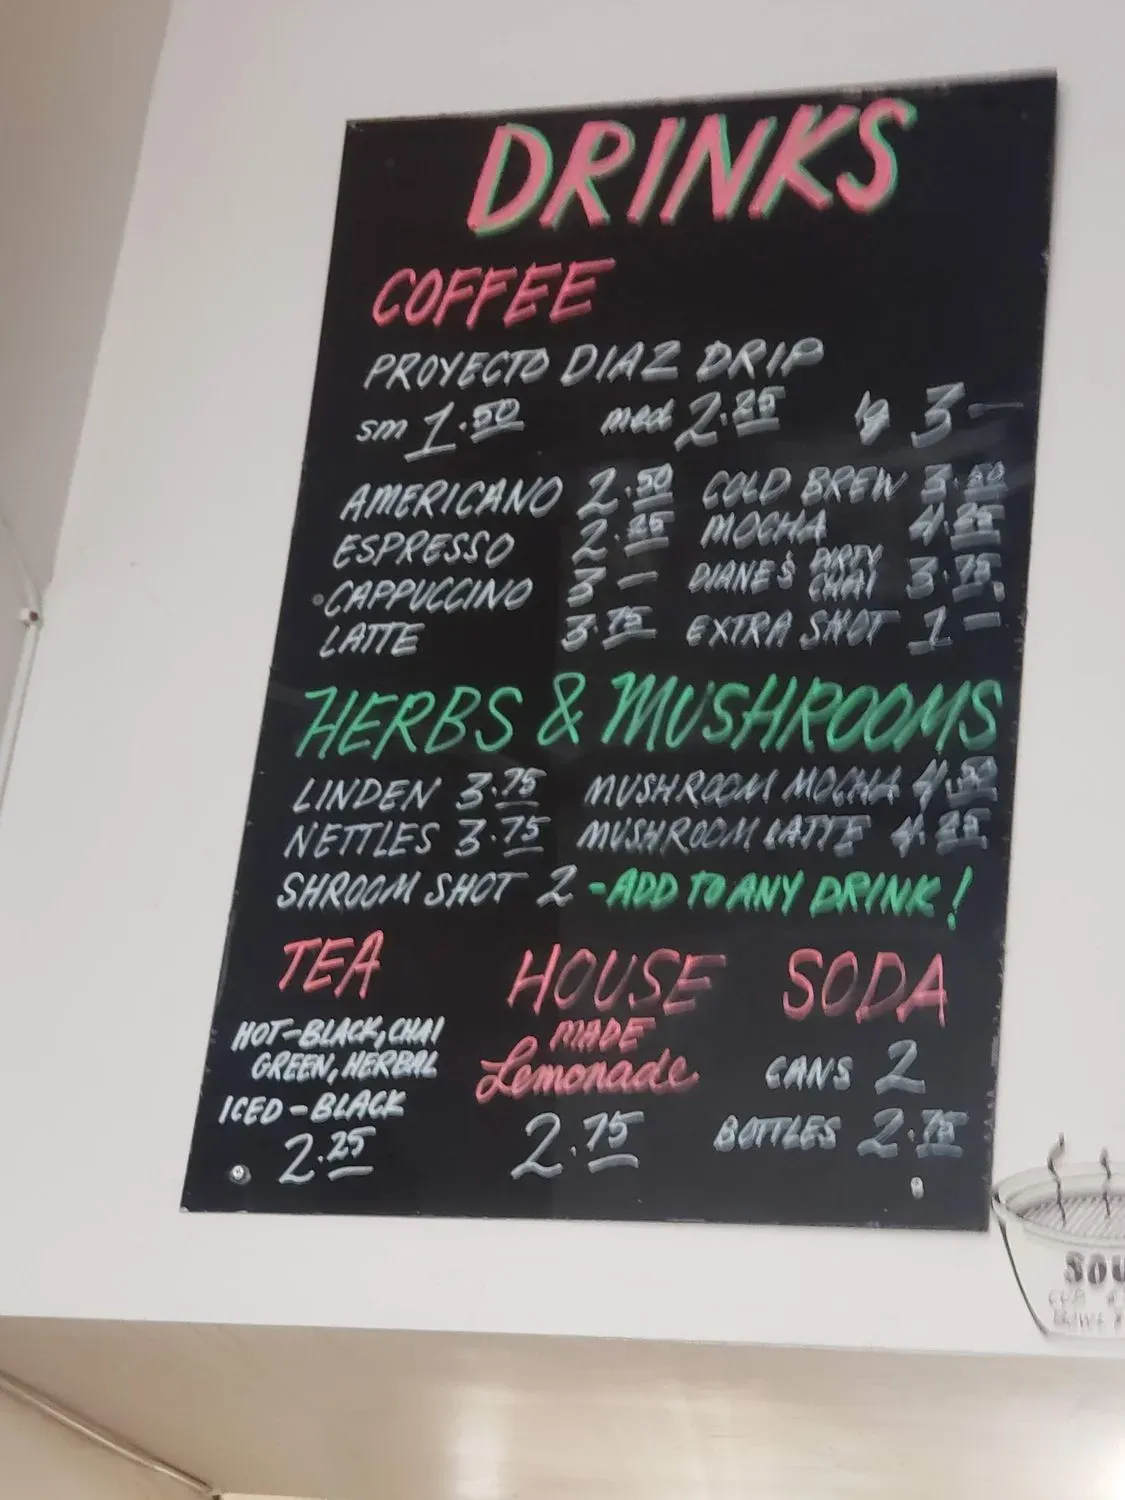 DRINKS
COFFEE
PROYECTO DIAZ DRIP
sm 1.50 med 2.25 lg 3—
AMERICANO 2.50 COLD BREW 3.50
ESPRESSO 2.25 MOCHA 4.25
CAPPUCCINO 3— DIANE'S DIRTY CHAI 3.75
LATTE 3.75 EXTRA SHOT 1—
HERBS & MUSHROOMS
LINDEN 3.75 MUSHROOM MOCHA 4.50
NETTLES 3.75 MUSHROOM LATTE 4.25
SHROOM SHOT 2 -ADD TO ANY DRINK!
TEA
HOT-BLACK, CHAI
GREEN, HERBAL
ICED-BLACK
2.25
HOUSE
MADE
Lemonade
2.75
SODA
CANS 2
BOTTLES 2.75
SOU